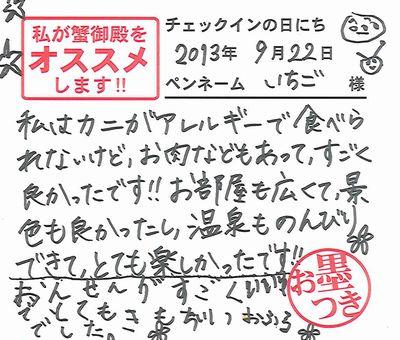 私が蟹御殿を
オススメ
します!!
チェックインの日にち
2013年 9月22日
ペンネーム いちご 様
私はカニがアレルギーで食べら
れないけど、お肉などもあって、すごく
良かったです!! お部屋も広くて、景
色も良かったし、温泉ものんびり
できて、とても楽しかったです!!
おんせんがすごく
でとてもきもち
でした。
お墨つき